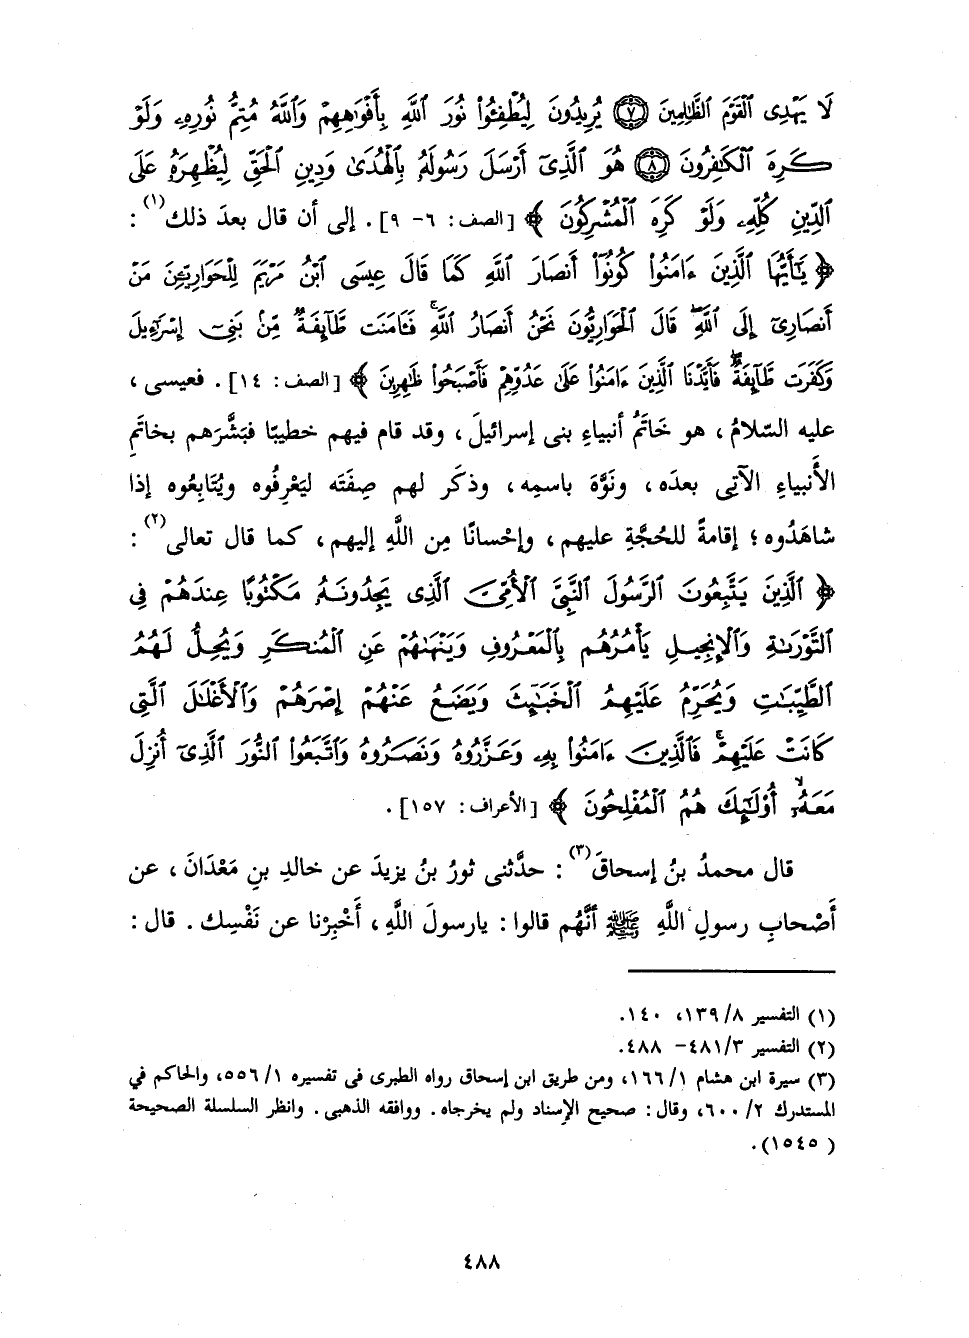 لَا يَهْدِى ٱلْقَوْمَ ٱلظَّـٰلِمِينَ ﴿٧﴾ يُرِيدُونَ لِيُطْفِـُٔوا۟ نُورَ ٱللَّهِ بِأَفْوَٰهِهِمْ وَٱللَّهُ مُتِمُّ نُورِهِۦ وَلَوْ
كَرِهَ ٱلْكَـٰفِرُونَ ﴿٨﴾ هُوَ ٱلَّذِىٓ أَرْسَلَ رَسُولَهُۥ بِٱلْهُدَىٰ وَدِينِ ٱلْحَقِّ لِيُظْهِرَهُۥ عَلَى
ٱلدِّينِ كُلِّهِۦ وَلَوْ كَرِهَ ٱلْمُشْرِكُونَ ﴾ [الصف: ٦- ٩]. إلى أن قال بعدَ ذلك(١) :
﴿ يَـٰٓأَيُّهَا ٱلَّذِينَ ءَامَنُوا۟ كُونُوٓا۟ أَنصَارَ ٱللَّهِ كَمَا قَالَ عِيسَى ٱبْنُ مَرْيَمَ لِلْحَوَارِيِّـۧنَ مَنْ
أَنصَارِىٓ إِلَى ٱللَّهِۖ قَالَ ٱلْحَوَارِيُّونَ نَحْنُ أَنصَارُ ٱللَّهِۖ فَـَٔامَنَت طَّآئِفَةٌۭ مِّنۢ بَنِىٓ إِسْرَٰٓءِيلَ
وَكَفَرَت طَّآئِفَةٌۭۖ فَأَيَّدْنَا ٱلَّذِينَ ءَامَنُوا۟ عَلَىٰ عَدُوِّهِمْ فَأَصْبَحُوا۟ ظَـٰهِرِينَ ﴾ [الصف: ١٤]. فعيسى ،
عليه السّلامُ، هو خَاتَمُ أنبياءِ بنى إسرائيلَ، وقد قام فيهم خطيبًا فبَشَّرَهم بخاتَمِ
الأنبياءِ الآتِى بعدَه، ونَوَّهَ باسمِه، وذكَر لهم صِفَتَه ليَعْرِفُوه ويُتَابِعُوه إذا
شاهَدُوه؛ إقامةً للحُجَّةِ عليهم، وإحْسانًا مِن اللَّهِ إليهم، كما قال تعالى(٢) :
﴿ ٱلَّذِينَ يَتَّبِعُونَ ٱلرَّسُولَ ٱلنَّبِىَّ ٱلْأُمِّىَّ ٱلَّذِى يَجِدُونَهُۥ مَكْتُوبًا عِندَهُمْ فِى
ٱلتَّوْرَىٰةِ وَٱلْإِنجِيلِ يَأْمُرُهُم بِٱلْمَعْرُوفِ وَيَنْهَىٰهُمْ عَنِ ٱلْمُنكَرِ وَيُحِلُّ لَهُمُ
ٱلطَّيِّبَـٰتِ وَيُحَرِّمُ عَلَيْهِمُ ٱلْخَبَـٰٓئِثَ وَيَضَعُ عَنْهُمْ إِصْرَهُمْ وَٱلْأَغْلَـٰلَ ٱلَّتِى
كَانَتْ عَلَيْهِمْۚ فَٱلَّذِينَ ءَامَنُوا۟ بِهِۦ وَعَزَّرُوهُ وَنَصَرُوهُ وَٱتَّبَعُوا۟ ٱلنُّورَ ٱلَّذِىٓ أُنزِلَ
مَعَهُۥٓۙ أُو۟لَـٰٓئِكَ هُمُ ٱلْمُفْلِحُونَ ﴾ [الأعراف: ١٥٧].
قال محمدُ بنُ إسحاقَ(٣) : حدَّثنى ثورُ بنُ يزيدَ عن خالدِ بنِ مَعْدَانَ، عن
أَصْحابِ رسولِ اللَّهِ ﷺ أنَّهُم قالوا: يارسولَ اللَّهِ، أَخْبِرْنا عن نَفْسِك. قال:
(١) التفسير ٨/ ١٣٩، ١٤٠.
(٢) التفسير ٣/ ٤٨١- ٤٨٨.
(٣) سيرة ابن هشام ١/ ١٦٦، ومن طريق ابن إسحاق رواه الطبرى فى تفسيره ١/ ٥٥٦، والحاكم في
المستدرك ٢/ ٦٠٠، وقال: صحيح الإسناد ولم يخرجاه. ووافقه الذهبى. وانظر السلسلة الصحيحة
(١٥٤٥).
٤٨٨